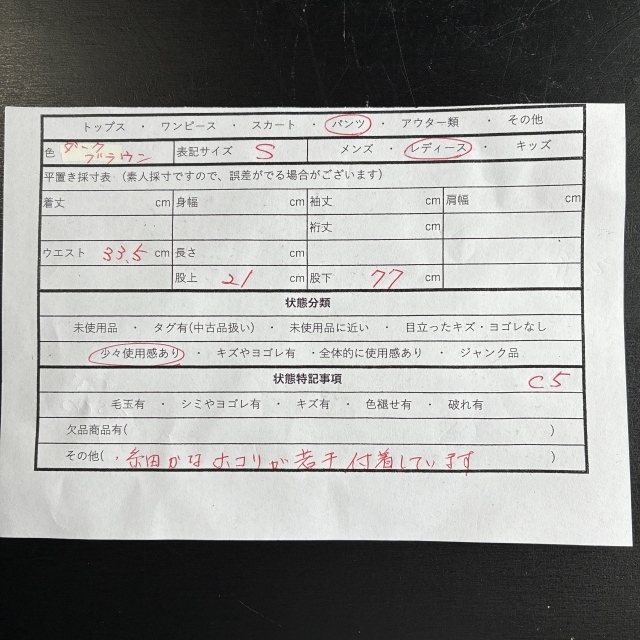 トップス ・ ワンピース ・ スカート ・ パンツ ・ アウター類 ・ その他
色 ダークブラウン 表記サイズ S メンズ ・ レディース ・ キッズ
平置き採寸表 (素人採寸ですので、誤差がでる場合がございます)
着丈 cm 身幅 cm 袖丈 cm 肩幅 cm
裄丈 cm
ウエスト 33.5 cm 長さ cm
股上 21 cm 股下 77 cm
状態分類
未使用品 ・ タグ有(中古品扱い) ・ 未使用品に近い ・ 目立ったキズ・ヨゴレなし
少々使用感あり ・ キズやヨゴレ有 ・全体的に使用感あり ・ ジャンク品
状態特記事項 C5
毛玉有 ・ シミやヨゴレ有 ・ キズ有 ・ 色褪せ有 ・ 破れ有
欠品商品有( )
その他( 細かなホコリが若干付着しています )